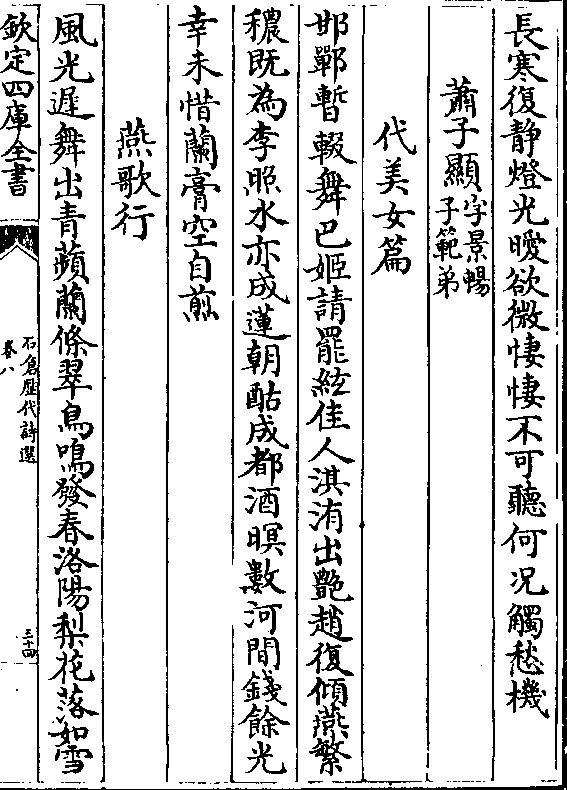 長寒復静燈光曖欲微悽悽不可聽何况觸愁機
蕭子顯字景暢子範弟
代美女篇
邯鄲暫輟舞巴姬請罷絃佳人淇洧出艷趙復傾燕繁
穠既為李照水亦成蓮朝酤成都酒暝數河間錢餘光
幸未惜蘭膏空自煎
燕歌行
風光遲舞出青蘋蘭條翠鳥鳴發春洛陽梨花落如雪
欽定四庫全書
石倉歷代詩選
卷八
三十四